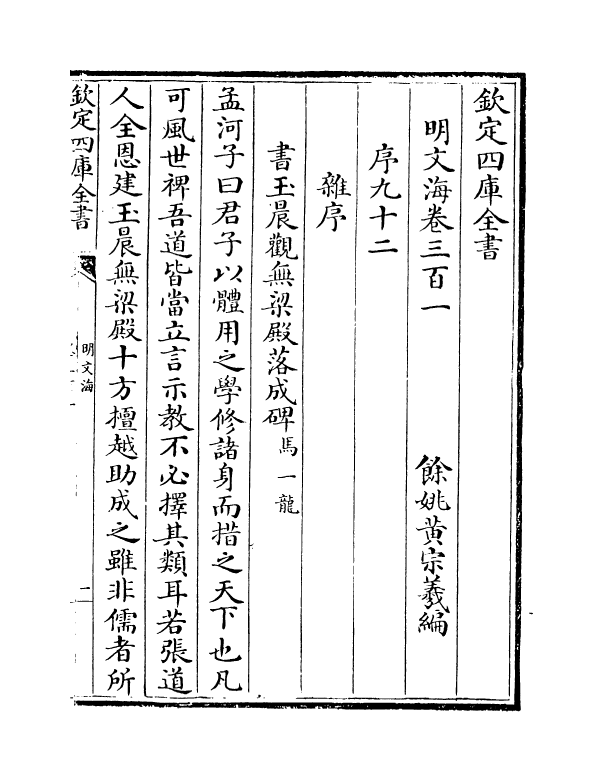 欽定四庫全書
明文海卷三百一
餘姚黄宗羲編
序九十二
雜序
書玉晨觀無梁殿落成碑 馬一龍
孟河子曰君子以體用之學修諸身而措之天下也凡
可風世禆吾道皆當立言示教不必擇其類耳若張道
人全恩建玉晨無梁殿十方擅越助成之雖非儒者所
欽定四庫全書
明文海